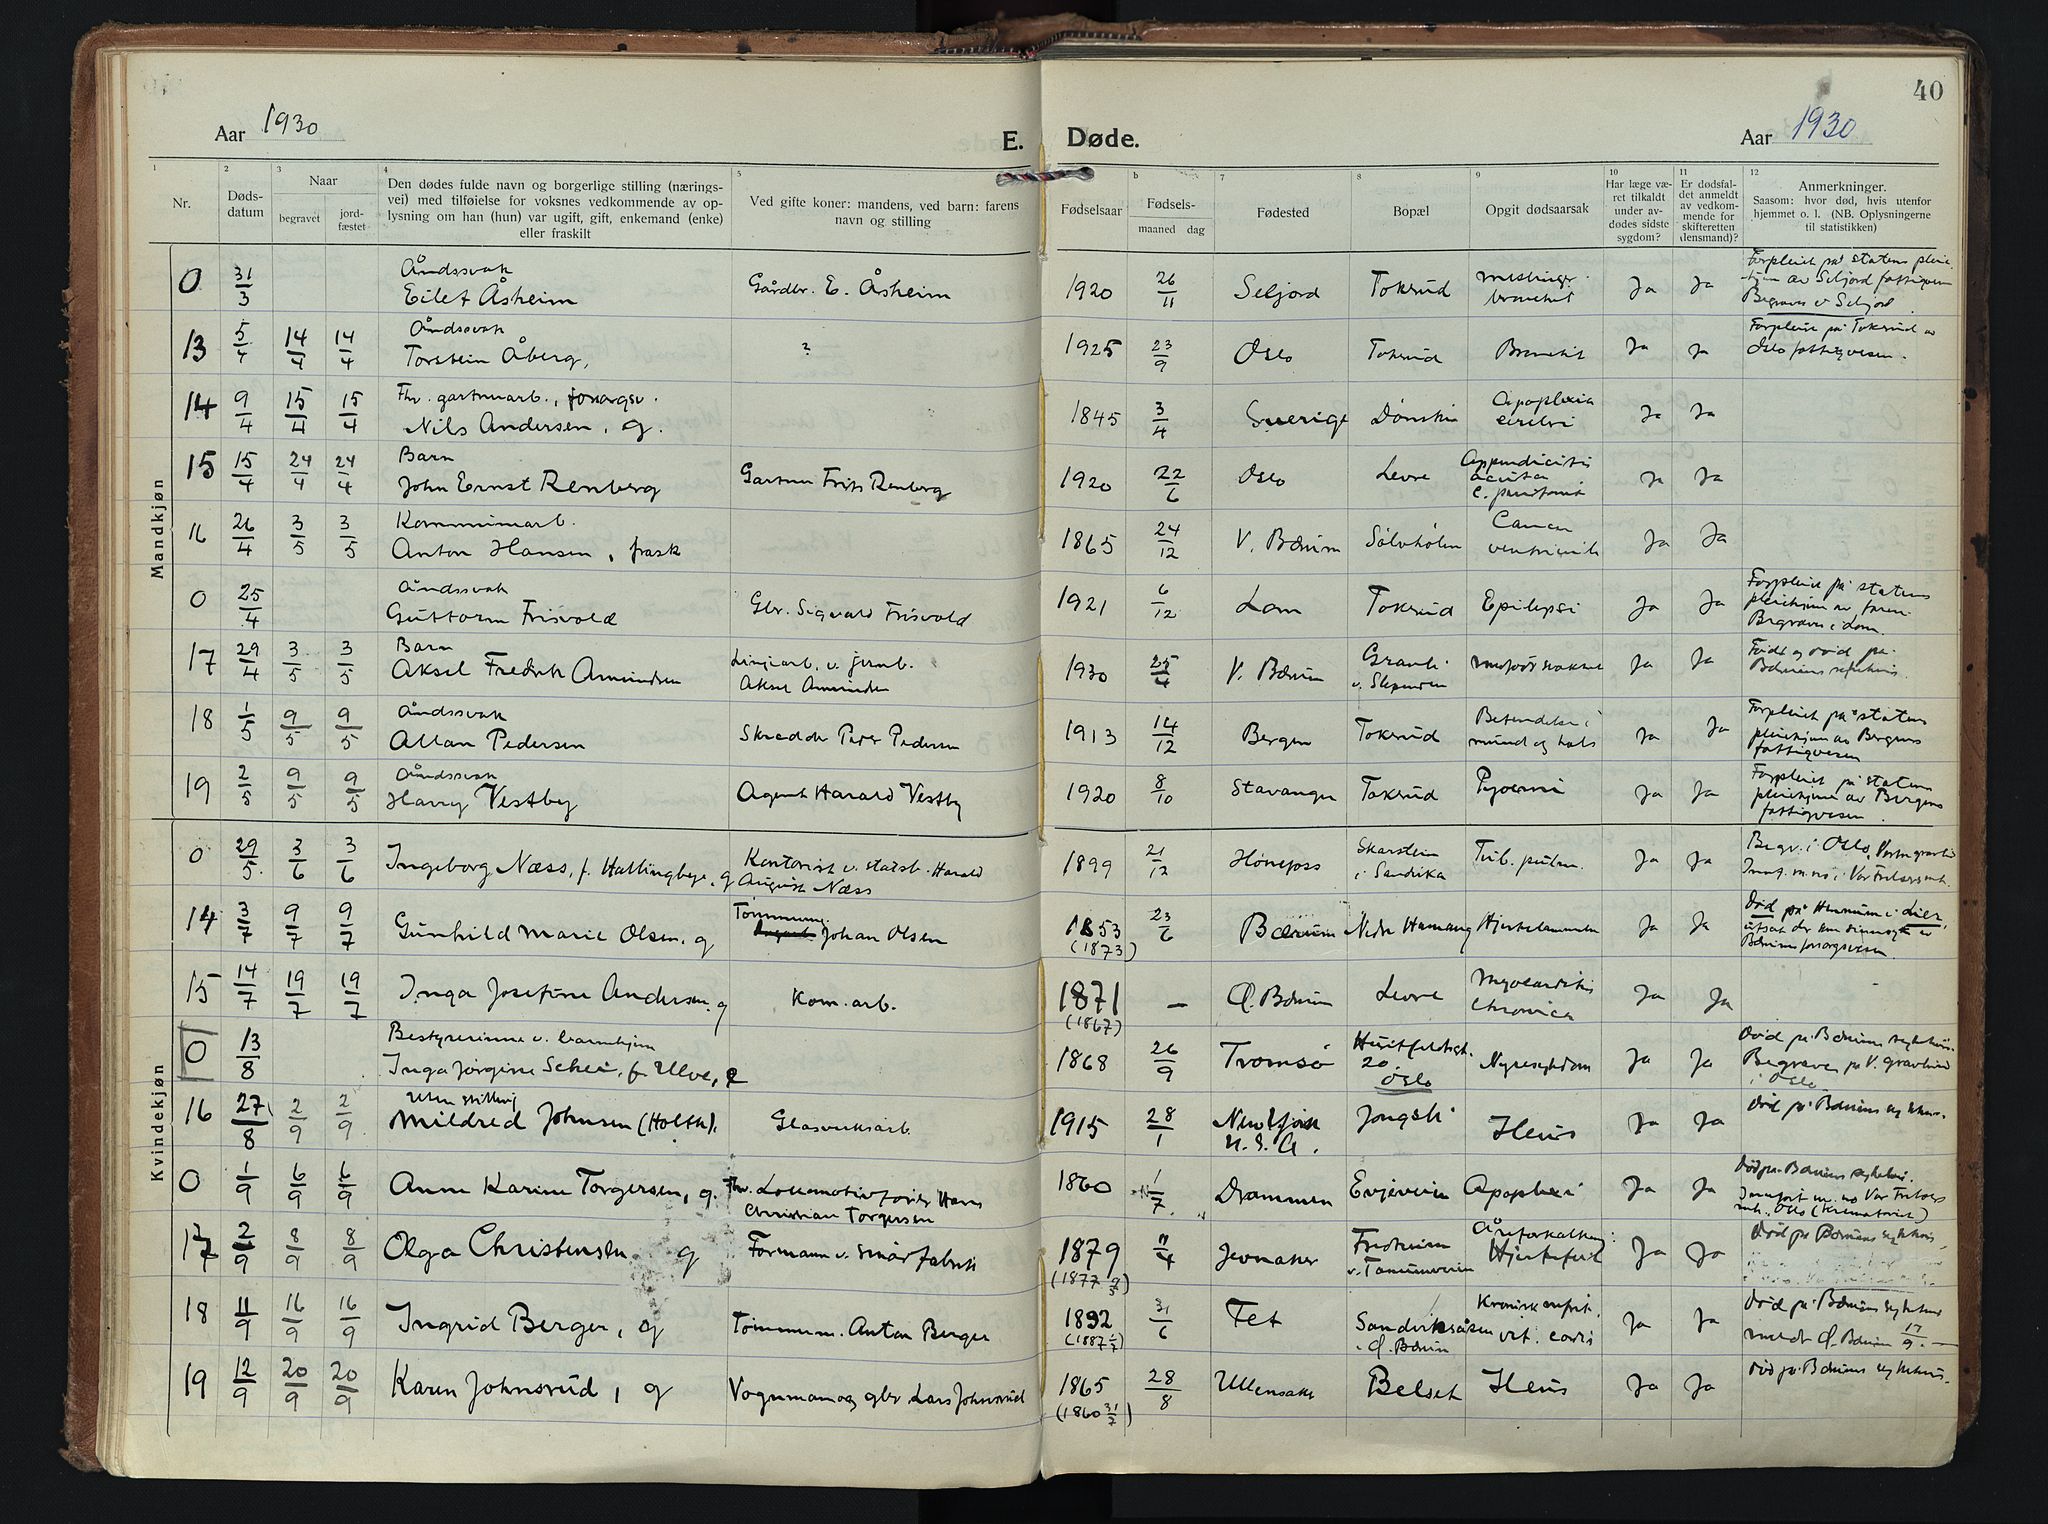 40
Aar 1930
E. Døde.
Aar 1930
1 2 3 4 5 6 7 8 9 10 11 12
Nr.
Døds-
datum
Naar
begravet
jord-
fæstet
Den dødes fulde navn og borgerlige stilling (nærings-
vei) med tilføielse for voksnes vedkommende av op-
lysning om han (hun) var ugift, gift, enkemand (enke)
eller fraskilt
Ved gifte koner: mandens, ved barn: farens
navn og stilling
Fødselsaar
Fødsels-
maaned dag
Fødested
Bopæl
Opgit dødsaarsak
Har læge væ-
ret tilkaldt
under av-
dødes sidste
sygdom?
Er dødsfal-
det anmeldt
av vedkom-
mende for
skifteretten
(lensmand)?
Anmerkninger.
Saasom: hvor død, hvis utenfor
hjemmet o. l. (NB. Oplysningerne
til statistikken)
Mandkjøn
0 31/3 Åndssvak
Eilef Åsheim Gårdbr. E. Åsheim 1920 26/11 Seljord Tokerud Ja Ja
Begraves i Seljord.
13 5/4 14/4 14/4 Åndssvak
Torstein Åberg, ? 1925 23/9 Oslo Tokerud Bronkit Ja Ja Forpleiet på Tokerud av
Oslo fattigvesen.
14 9/4 15/4 15/4 Fhv. gartnerarb., forsørgv.
Nils Andersen, g. 1845 3/4 Sverige Dønski Apoplexia
cerebri Ja Ja
15 15/4 24/4 24/4 Barn
John Ernst Renberg Gartner Frits Renberg 1920 22/6 Oslo Levre Appendicitis
acuta
c. peritonit Ja Ja
16 26/4 3/5 3/5 Kommunearb.
Anton Hansen, frask 1865 24/12 V. Bærum Sølvholm Cancer
ventriculi Ja Ja
0 25/4 Åndssvak
Guttorm Frisvold Gbr. Sigvald Frisvold 1921 6/12 Lom Tokerud Epilepsi Ja Ja Forpleiet på statens
pleiehjem av faren.
Begraves i Lom.
17 29/4 3/5 3/5 Barn
Aksel Fredrik Amundsen Linjearb. v. jernb.
Aksel Amundsen 1930 25/4 V. Bærum
v. Slependen Ja Ja Født og død på
Bærums sykehus.
18 1/5 9/5 9/5 Åndssvak
Allan Pedersen Skredder Peter Pedersen 1913 14/12 Bergen Tokerud Betendelse i
mund og hals Ja Ja Forpleiet på statens
pleiehjem av Bergens
fattigvesen
19 2/5 9/5 9/5 Åndssvak
Harry Vestby Agent Harald Vestby 1920 8/10 Stavanger Tokerud Pyoemi Ja Ja Forpleiet på statens
pleiehjem av Bergens
fattigvesen.
Kvindekjøn
0 29/5 3/6 3/6 Ingeborg Næss, f. Hallingbye, g Kontorist v. statsb. Harald
August Næss 1899 21/12 Hønefoss Skarstein
i Sandvika Tub. pulm. Ja Ja Begr. i Oslo, Vestre gravlund
14 3/7 9/7 9/7 Gunhild Marie Olsen, g Tømmerm.
Johan Olsen 1853
(1873) 23/6 Bærum Nedre Hamang Hjertelammelse Ja Ja Død på Hennum i Lier
Bærums forsorgsvesen.
15 14/7 19/7 19/7 Inga Josefine Andersen, g Kom. arb. 1871
(1867) — Ø. Bærum Levre Myocarditis
chronica Ja Ja
0 13/8 Bestyrerinne v. barnehjem
Inga Jørgine Schei, f. Ulve, e 1868 26/9 Tromsø Huitfeldtsgt.
20
Oslo Nyresykdom Ja Ja Død på Bærums sykehus.
Begraves på V. gravlund
i Oslo
16 27/8 2/9 2/9 Uten stilling
Mildred Johnsen (Holth), Glasverksarb. 1915 28/1
U. S. A. Jongsk. Ileus Ja Ja Død på Bærums sykehus.
0 1/9 6/9 6/9 Anne Karine Torgersen, g. Fhv. Lokomotivfører Hans
Christian Torgersen 1860 1/7 Drammen Evjeveien Apoplexi Ja Ja Død på Bærums sykehus.
Oslo (Krematoriet)
17 2/9 8/9 8/9 Olga Christensen g Formann v. smørfabrik 1879
(1877 9/3) 11/4 Jevnaker Fredheim
v. Tanumveien Åreforkalkning:
Hjertefeil Ja Ja Død på Bærums sykehus,
18 11/9 16/9 16/9 Ingrid Berger, g Tømmerm. Anton Berger 1892
31/6 Fet Sandviksåsen
i Ø. Bærum Kronisk nefrit,
vit. cordis Ja Ja Død på Bærums sykehus
meldt Ø. Bærum 17/9. —
19 12/9 20/9 20/9 Karen Johnsrud, g Vognmann og gbr Lars Johnsrud 1865
(1860 31/7) 28/8 Ullensaker Belset Ileus Ja Ja Død på Bærums sykehus.